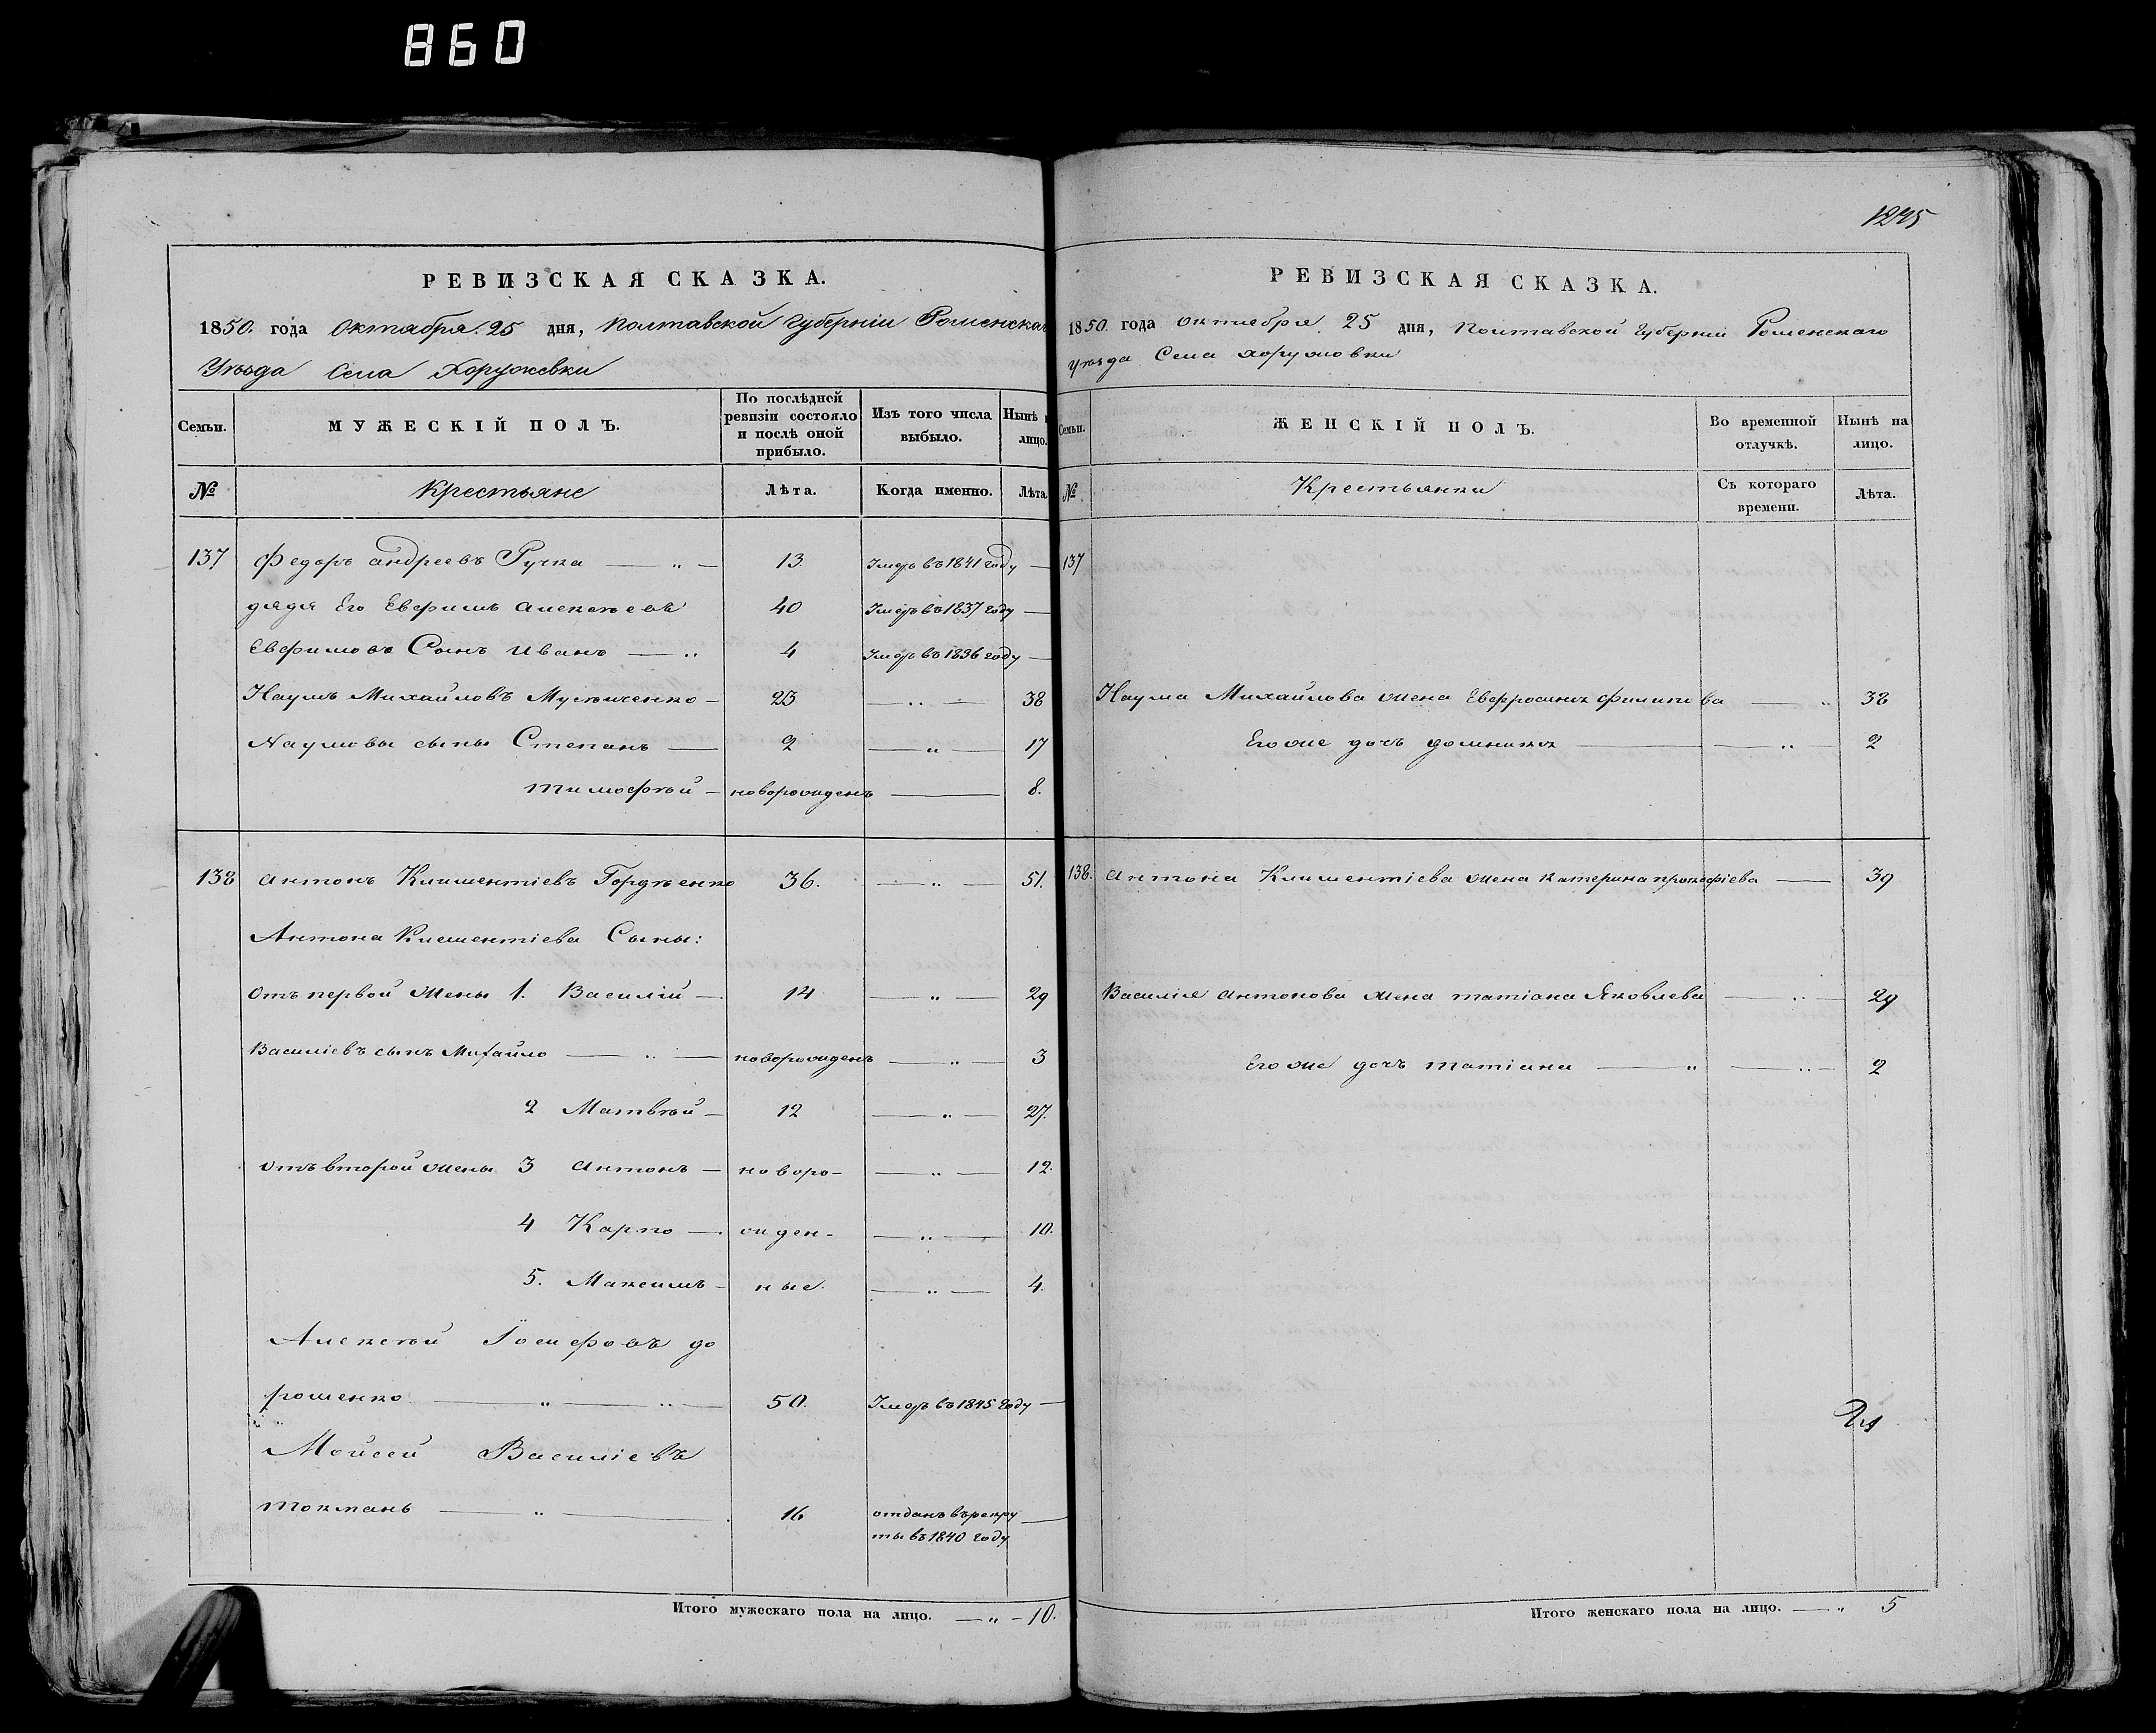 860
РЕВИЗСКАЯ СКАЗКА.
1850. года Октября. 25 дня, Полтавской Губерніи Роменскаго
Уѣзда Села Хоружевки
Семьи.
МУЖЕСКІЙ ПОЛЪ.
По послѣдней ревизіи состояло и послѣ оной прибыло.
Изъ того числа выбыло.
Нынѣ лицо.
№ Крестьяне Лѣта. Когда именно. Лѣта.
137 Федоръ Андреевъ Ручка — „ — 13. Умеръ въ 1841 году —
Дядя Его Евфимъ Алексѣевъ 40 Умеръ въ 1837 году —
Евфимовъ Сынъ Иванъ — „ 4 Умеръ въ 1836 году —
Наумъ Михайловъ Мусѣиченко — 23 — „ — 38
Наумовы сыны Степанъ — 2 — „ — 17
Тимофѣй — новорожденъ — 8.
138 Антонъ Климентіевъ Гордѣенко 36. — „ — 51.
Антона Климентіева Сыны:
Отъ первой жены 1. Василій — 14 — „ — 29
Василіевъ сынъ Михайло — „ — новорожденъ — „ — 3
2 Матвѣй — 12 — „ — 27.
Отъ второй жены 3 Антонъ — новоро- — „ — 12.
4 Карпо — жден- — „ — 10.
5. Максимъ — ные. — „ — 4.
Алексѣй Іосифовъ До
рошенко — „ — „ — 50. Умеръ въ 1845 году —
Мойсей Василіевъ
Токмань — „ — 16 отданъ въ рекру —
ты въ 1840 году
Итого мужескаго пола на лицо. — „ — 10.
1245
РЕВИЗСКАЯ СКАЗКА.
1850. года Октября 25 дня, Полтавской Губерніи Роменскаго
Уѣзда Села Хоружовки
Семьи.
ЖЕНСКІЙ ПОЛЪ.
Во временной отлучкѣ.
Нынѣ на лицо.
№ Крестьянки Съ котораго времени. Лѣта.
137
Наума Михайлова жена Евфросинія Филипова — „ 38
Его же дочь Домникія — „ — 2
138. Антона Климентіева жена Катерина Прокофіева — 39
Василія Антонова жена Татіана Яковлева — „ — 29
Его же дочь Татіана — „ — „ — 2
Итого женскаго пола на лицо. — „ 5